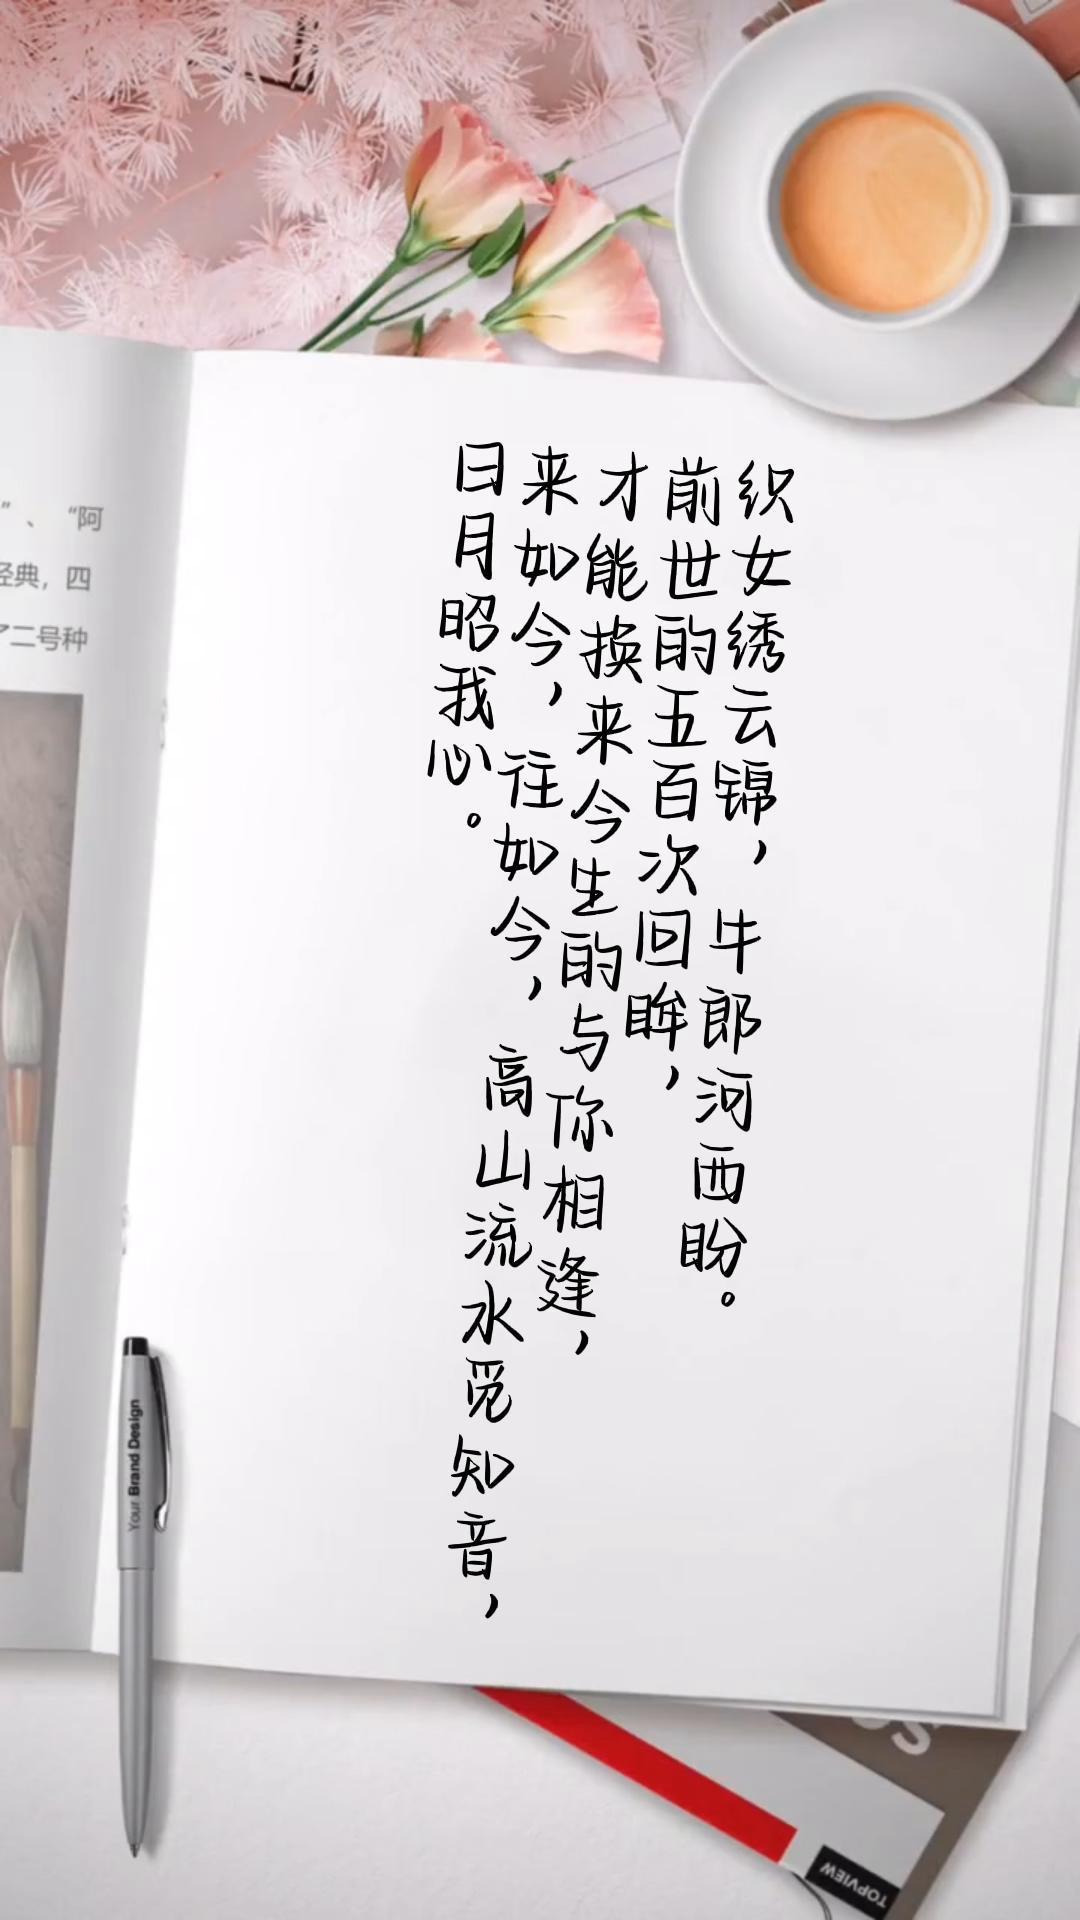 织女绣云锦，牛郎河西盼。
前世的五百次回眸，
才能换来今生的与你相逢，
来如今，往如今，高山流水觅知音，
日月昭我心。
”、“阿
经典，四
了二号种
Your Brand Design
TOPVIEW